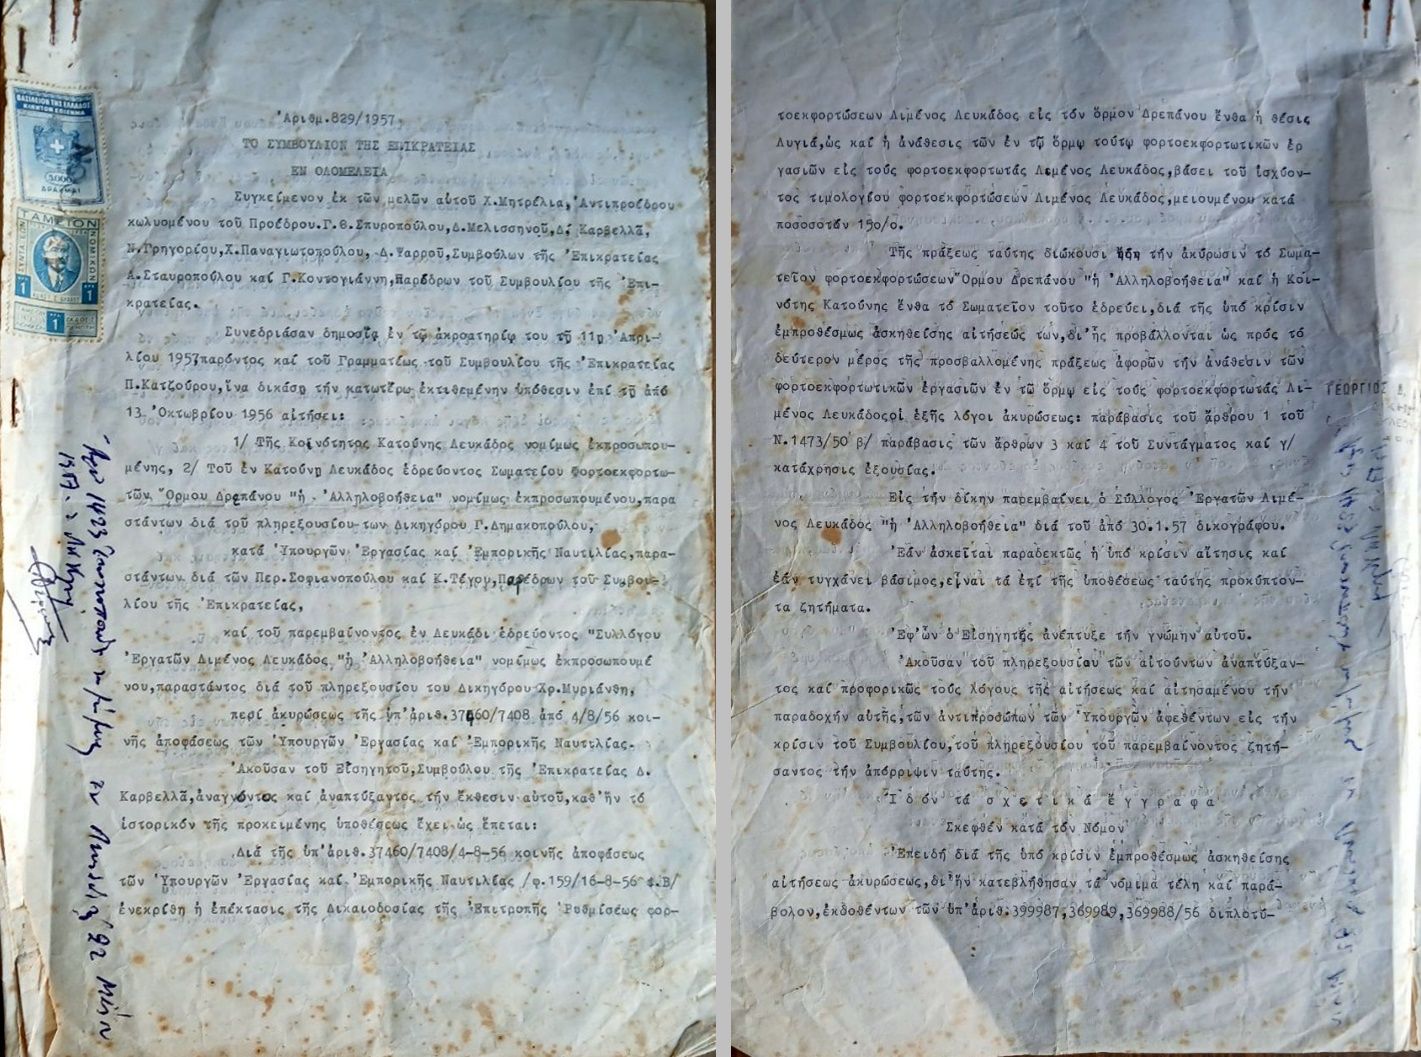 ΒΑΣΙΛΕΙΟΝ ΤΗΣ ΕΛΛΑΔΟΣ
ΚΙΝΗΤΟΝ ΕΠΙΣΗΜΑ
5.000
ΔΡΑΧΜΑΙ
ΤΑΜΕΙΟΝ
ΣΥΝΤΑΞΕΩΝ
ΝΟΜΙΚΩΝ
1
1
1
Ἀριθμ.829/1957
ΤΟ ΣΥΜΒΟΥΛΙΟΝ ΤΗΣ ΕΠΙΚΡΑΤΕΙΑΣ
ΕΝ ΟΛΟΜΕΛΕΙΑ
Συγκείμενον ἐκ τῶν μελῶν αὐτοῦ Χ.Μητρέλια, Ἀντιπροέδρου
κωλυομένου τοῦ Προέδρου.Γ.Θ.Σπυροπούλου,Δ.Μελισσηνοῦ,Δ. Καρβελλᾶ,
Ν.Γρηγορίου,Χ.Παναγιωτοπούλου, Δ.Ψαρροῦ,Συμβούλων τῆς Ἐπικρατείας
Α.Σταυροπούλου καί Γ.Κοντογιάννη,Παρέδρων τοῦ Συμβουλίου τῆς Ἐπι-
κρατείας.
Συνεδριάσαν δημοσίᾳ ἐν τῷ ἀκροατηρίῳ του τῇ 11ῃ Ἀπρι-
λίου 1957παρόντος καί τοῦ Γραμματέως τοῦ Συμβουλίου τῆς Ἐπικρατείας
Π.Κατζούρου,ἵνα δικάσῃ τήν κατωτέρω ἐκτιθεμένην ὑπόθεσιν ἐπί τῇ ἀπό
13 Ὀκτωβρίου 1956 αἰτήσει:
1/ Τῆς Κοινότητος Κατούνης Λευκάδος νομίμως ἐκπροσωπου-
μένης, 2/ Τοῦ ἐν Κατούνῃ Λευκάδος ἑδρεύοντος Σωματείου Φορτοεκφορτω-
τῶν Ὅρμου Δρεπάνου "ἡ Ἀλληλοβοήθεια" νομίμως ἐκπροσωπουμένου,παρα
στάντων διά τοῦ πληρεξουσίου των Δικηγόρου Γ.Δημακοπούλου,
κατά Ὑπουργῶν Ἐργασίας καί Ἐμπορικῆς Ναυτιλίας,παρα-
στάντων διά τῶν Περ.Σοφιανοπούλου καί Κ.Τέγου,Παρέδρων τοῦ Συμβου-
λίου τῆς Ἐπικρατείας,
καί τοῦ παρεμβαίνοντος ἐν Λευκάδι ἑδρεύοντος "Συλλόγου
Ἐργατῶν Λιμένος Λευκάδος "ἡ Ἀλληλοβοήθεια" νομίμως ἐκπροσωπουμέ
νου,παραστάντος διά τοῦ πληρεξουσίου του Δικηγόρου Χρ.Μυριάνθη,
περί ἀκυρώσεως τῆς ὑπ'ἀριθ.37460/7408 ἀπό 4/8/56 κοι-
νῆς ἀποφάσεως τῶν Ὑπουργῶν Ἐργασίας καί Ἐμπορικῆς Ναυτιλίας.
Ἀκοῦσαν τοῦ Εἰσηγητοῦ,Συμβούλου τῆς Ἐπικρατείας Δ.
Καρβελλᾶ,ἀναγνόντος καί ἀναπτύξαντος τήν ἔκθεσιν αὐτοῦ,καθ'ἥν τό
ἱστορικόν τῆς προκειμένης ὑποθέσεως ἔχει ὡς ἕπεται:
Διά τῆς ὑπ'ἀριθ.37460/7408/4-8-56 κοινῆς ἀποφάσεως
τῶν Ὑπουργῶν Ἐργασίας καί Ἐμπορικῆς Ναυτιλίας /φ.159/16-8-56 τ.Β/
ἐνεκρίθη ἡ ἐπέκτασις τῆς Δικαιοδοσίας τῆς Ἐπιτροπῆς Ρυθμίσεως φορ-
τοεκφορτώσεων Λιμένος Λευκάδος εἰς τόν ὅρμον Δρεπάνου ἔνθα ἡ θέσις
Λυγιά,ὡς καί ἡ ἀνάθεσις τῶν ἐν τῷ ὅρμῳ τούτῳ φορτοεκφορτωτικῶν ἐρ
γασιῶν εἰς τούς φορτοεκφορτωτάς Λιμένος Λευκάδος,βάσει τοῦ ἰσχύον-
τος τιμολογίου φορτοεκφορτώσεων Λιμένος Λευκάδος,μειουμένου κατά
ποσοστόν 15ο/ο.
Τῆς πράξεως ταύτης διώκουσι ἤδη τήν ἀκύρωσιν τό Σωμα-
τεῖον φορτοεκφορτώσεων Ὅρμου Δρεπάνου "ἡ Ἀλληλοβοήθεια" καί ἡ Κοι-
νότης Κατούνης ἔνθα τό Σωματεῖον τοῦτο ἑδρεύει,διά τῆς ὑπό κρίσιν
ἐμπροθέσμως ἀσκηθείσης αἰτήσεώς των,δι'ἧς προβάλλονται ὡς πρός τό
δεύτερον μέρος τῆς προσβαλλομένης πράξεως ἀφορῶν τήν ἀνάθεσιν τῶν
φορτοεκφορτωτικῶν ἐργασιῶν ἐν τῷ ὅρμῳ εἰς τούς φορτοεκφορτωτάς Λι-
μένος Λευκάδος,οἱ ἑξῆς λόγοι ἀκυρώσεως: παράβασις τοῦ ἄρθρου 1 τοῦ
Ν.1473/50 β/ παράβασις τῶν ἄρθρων 3 καί 4 τοῦ Συντάγματος καί γ/
κατάχρησις ἐξουσίας.
Εἰς τήν δίκην παρεμβαίνει ὁ Σύλλογος Ἐργατῶν Λιμέ-
νος Λευκάδος "ἡ Ἀλληλοβοήθεια" διά τοῦ ἀπό 30.1.57 δικογράφου.
Ἐάν ἀσκεῖται παραδεκτῶς ἡ ὑπό κρίσιν αἴτησις καί
ἐάν τυγχάνει βάσιμος,εἶναι τά ἐπί τῆς ὑποθέσεως ταύτης προκύπτον-
τα ζητήματα.
Ἐφ'ὧν ὁ Εἰσηγητής ἀνέπτυξε τήν γνώμην αὐτοῦ.
Ἀκοῦσαν τοῦ πληρεξουσίου τῶν αἰτούντων ἀναπτύξαν-
τος καί προφορικῶς τούς λόγους τῆς αἰτήσεως καί αἰτησαμένου τήν
παραδοχήν αὐτῆς,τῶν ἀντιπροσώπων τῶν Ὑπουργῶν ἀφεθέντων εἰς τήν
κρίσιν τοῦ Συμβουλίου,τοῦ πληρεξουσίου τοῦ παρεμβαίνοντος ζητή-
σαντος τήν ἀπόρριψιν ταύτης.
Ἰδόν τά σχετικά ἔγγραφα
Σκεφθέν κατά τόν Νόμον
Ἐπειδή διά τῆς ὑπό κρίσιν ἐμπροθέσμως ἀσκηθείσης
αἰτήσεως ἀκυρώσεως,δι'ἥν κατεβλήθησαν τά νόμιμα τέλη καί παρά-
βολον,ἐκδοθέντων τῶν ὑπ'ἀριθ.399987,369989,369988/56 διπλοτύ-
ΓΕΩΡΓΙΟΣ